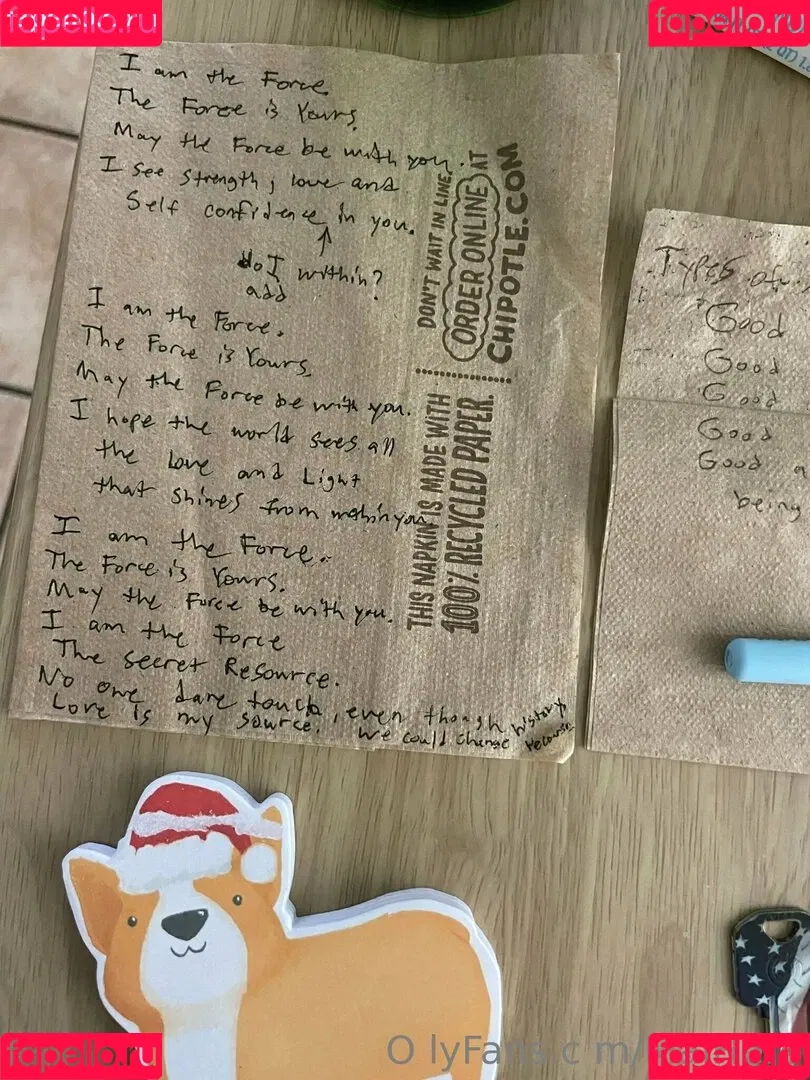 fapello.ru
fapello.ru
I am the Force.
The Force is Yours.
May the Force be with you.
I see strength, love and
Self confidence in you.
do I within?
add
I am the Force.
The Force is Yours.
May the Force be with you.
I hope the world sees all
the love and Light
that shines from within you
I am the Force.
The Force is Yours.
May the Force be with you.
I am the Force
The secret Resource.
No one dare touch, even though
Love is my source. We could change history,
DON'T WAIT IN LINE,
ORDER ONLINE AT
CHIPOTLE.COM
THIS NAPKIN IS MADE WITH
100% RECYCLED PAPER.
Types of
Good
Good
Good
Good
Good a
being
fapello.ru
fapello.ru